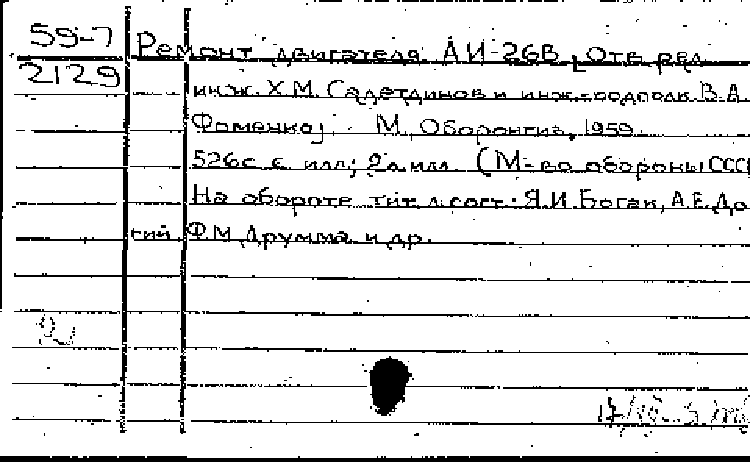 59-7
2129
Ремонт двигателя АИ-26В [Отв. ред.
инж. Х.М. Садетдинов и инж.-подполк. В.А.
Фоменко]. М. Оборонгиз, 1959.
526с. с илл; 2 л. илл. (М-во обороны СССР
На обороте тит. л. сост: Я.И. Боган, А.Е. До
ский, Ф.М. Друмма и др.